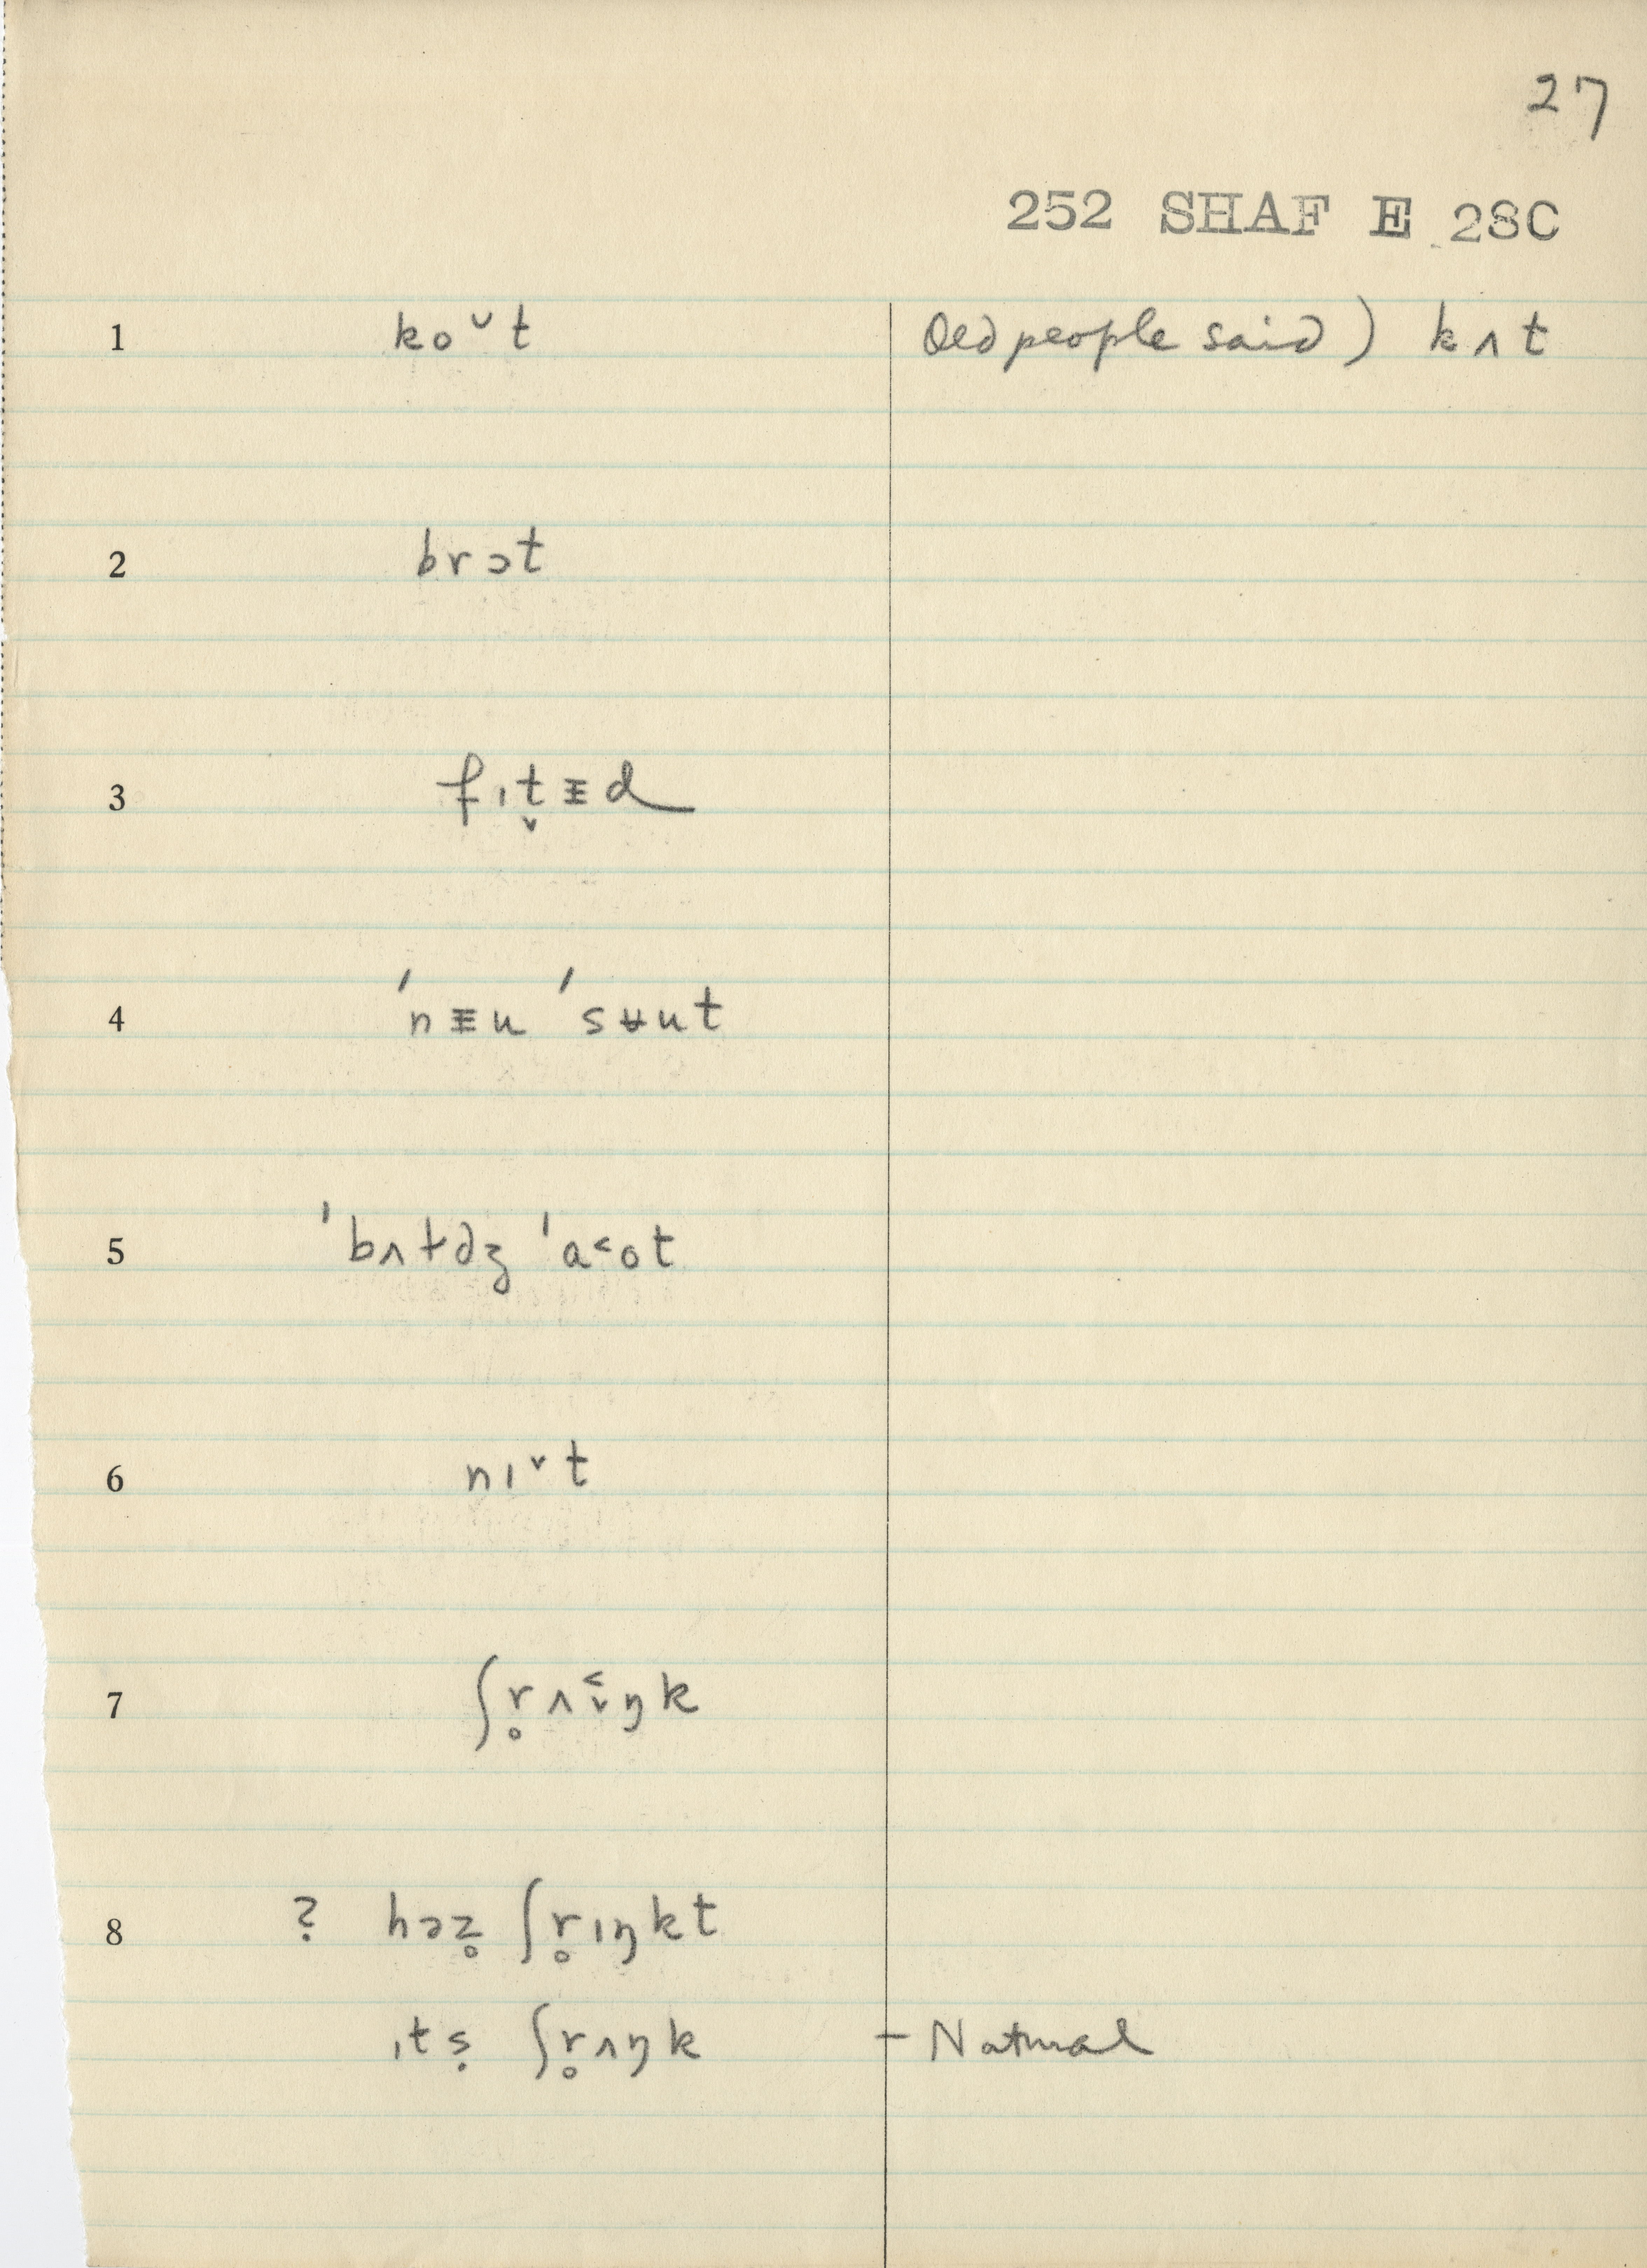 27
252 SHAF E 28C
1 ko˅t Old people said) kʌt
2 brɔt
3 fɪt̬ɪ̵d
4 ˈnɪ̵u ˈsʉut
5 ˈbʌtəz ˈa˂ot
6 nɪ˅t
7 ʃr̥ʌɪ̬˂ŋk
8 ? həz̥ ʃr̥ɪŋkt
ɪtṣ ʃr̥ʌŋk – Natural